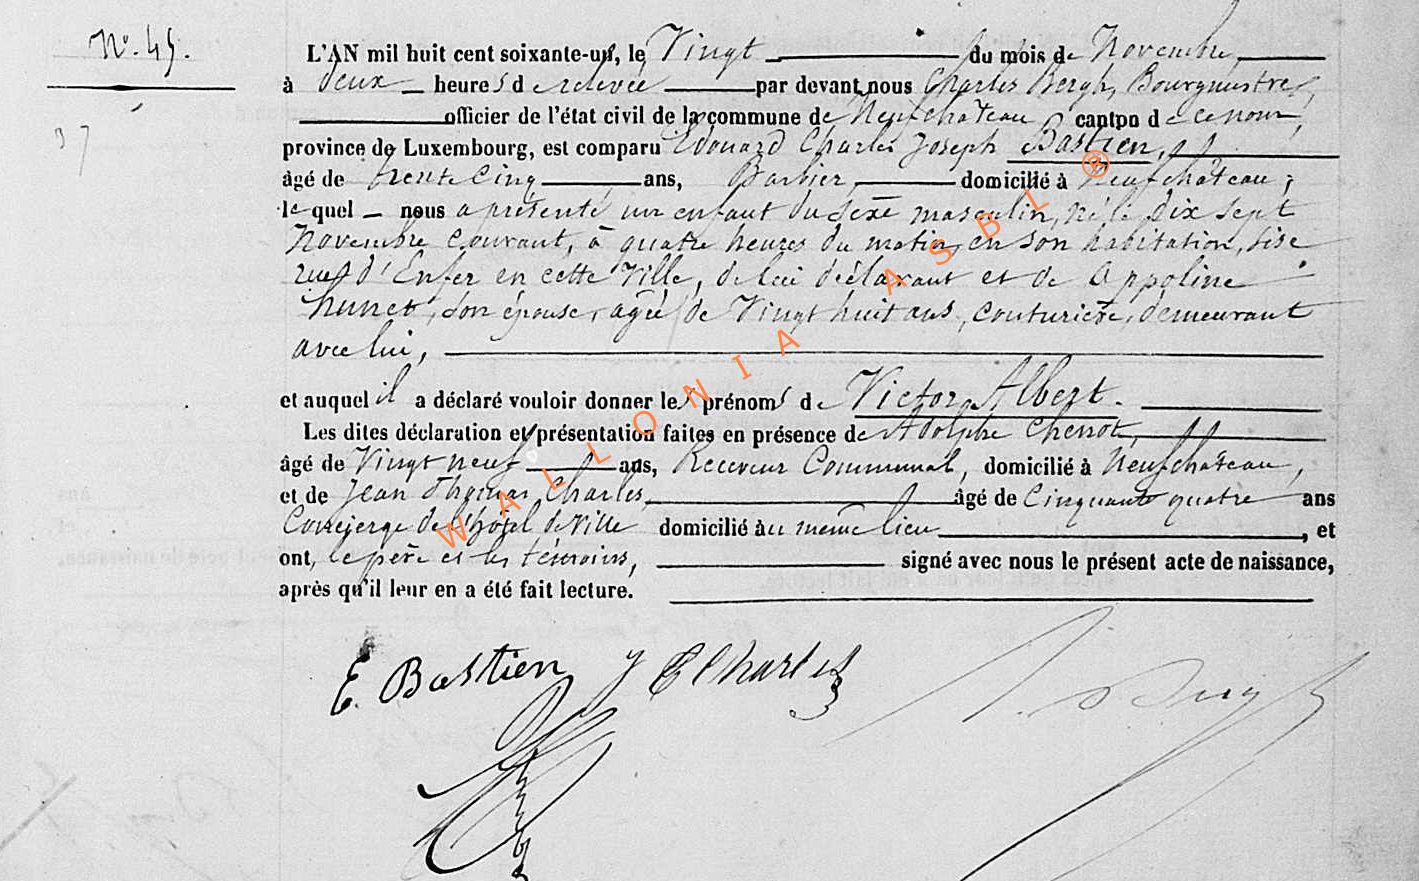 N°. 45.
37
L'AN mil huit cent soixante-un, le Vingt du mois de Novembre
à deux heures de relevée par devant nous Charles Bergh, Bourgmestre,
officier de l'état civil de la commune de Neufchâteau canton de ce nom,
province de Luxembourg, est comparu Edouard Charles Joseph Bastien,
âgé de trente cinq ans, Barbier domicilié à Neufchâteau;
lequel nous a présenté un enfant du sexe masculin, né le dix sept
Novembre courant, à quatre heures du matin, en son habitation, sise
rue d'Enfer en cette Ville, de lui déclarant et de Appoline
hunet, son épouse, agée de Vingt huit ans, couturière, demeurant
avec lui,
et auquel il a déclaré vouloir donner les prénoms de Victor Albert.
Les dites déclaration et présentation faites en présence de Adolphe Chenot,
âgé de Vingt neuf ans, Receveur Communal, domicilié à Neufchâteau,
et de Jean Thomas Charles, âgé de Cinquante quatre ans
Concierge de l'hôtel de Ville domicilié au même lieu, et
ont, le père et les témoins, signé avec nous le présent acte de naissance,
après qu'il leur en a été fait lecture.
E. Bastien J T Charles
WALLONIA ASBL ®